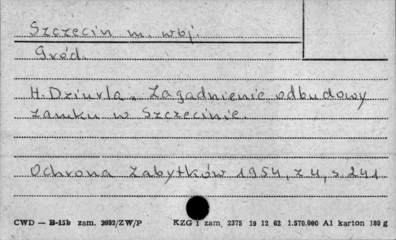 Szczecin m. wbj.
Gród.
H. Dziurla. Zagadnienie odbudowy
zamku w Szczecinie.
Ochrona Zabytków 1954, z 4, s. 241
CWD — B-15b zam. 2692/ZW/P KZG 1 zam. 2375 19 12 62 1.570.000 A1 karton 180 g